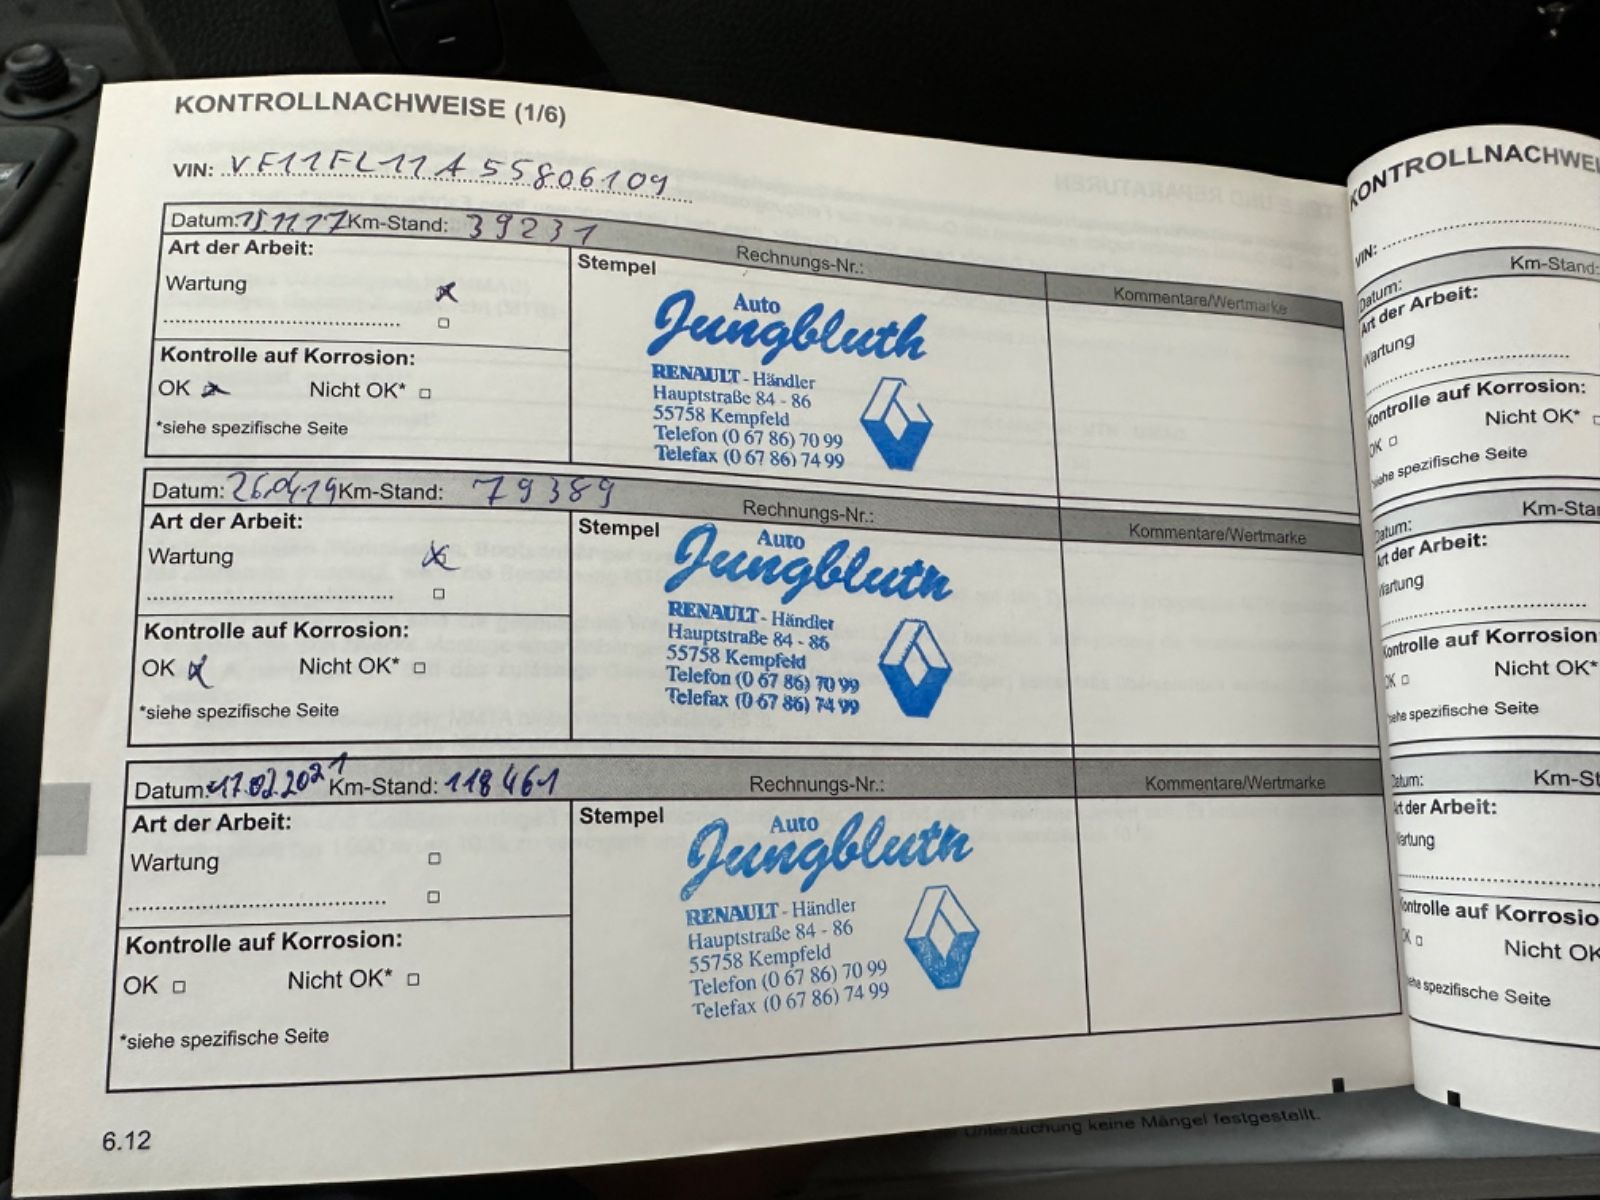 KONTROLLNACHWEISE (1/6)
VIN: VF11FL11A55806109
Datum: 151117 Km-Stand: 39231
Rechnungs-Nr.:
Kommentare/Wertmarke
Art der Arbeit:
Wartung
Kontrolle auf Korrosion:
OK Nicht OK*
*siehe spezifische Seite
Stempel
Auto
Jungbluth
RENAULT - Händler
Hauptstraße 84 - 86
55758 Kempfeld
Telefon (0 67 86) 70 99
Telefax (0 67 86) 74 99
Datum: 26.04.19 Km-Stand: 79389
Rechnungs-Nr.:
Kommentare/Wertmarke
Art der Arbeit:
Wartung
Kontrolle auf Korrosion:
OK Nicht OK*
*siehe spezifische Seite
Stempel
Auto
Jungbluth
RENAULT - Händler
Hauptstraße 84 - 86
55758 Kempfeld
Telefon (0 67 86) 70 99
Telefax (0 67 86) 74 99
Datum: 17.02.2021 Km-Stand: 118461
Rechnungs-Nr.:
Kommentare/Wertmarke
Art der Arbeit:
Wartung
Kontrolle auf Korrosion:
OK Nicht OK*
*siehe spezifische Seite
Stempel
Auto
Jungbluth
RENAULT - Händler
Hauptstraße 84 - 86
55758 Kempfeld
Telefon (0 67 86) 70 99
Telefax (0 67 86) 74 99
6.12
Untersuchung keine Mängel festgestellt.
KONTROLLNACHWEI
VIN:
Datum:
Km-Stand:
Art der Arbeit:
Wartung
Kontrolle auf Korrosion:
OK Nicht OK*
siehe spezifische Seite
Datum:
Km-Star
Art der Arbeit:
Wartung
Kontrolle auf Korrosion
OK Nicht OK*
siehe spezifische Seite
Datum:
Km-St
Art der Arbeit:
Wartung
Kontrolle auf Korrosio
OK Nicht OK
siehe spezifische Seite